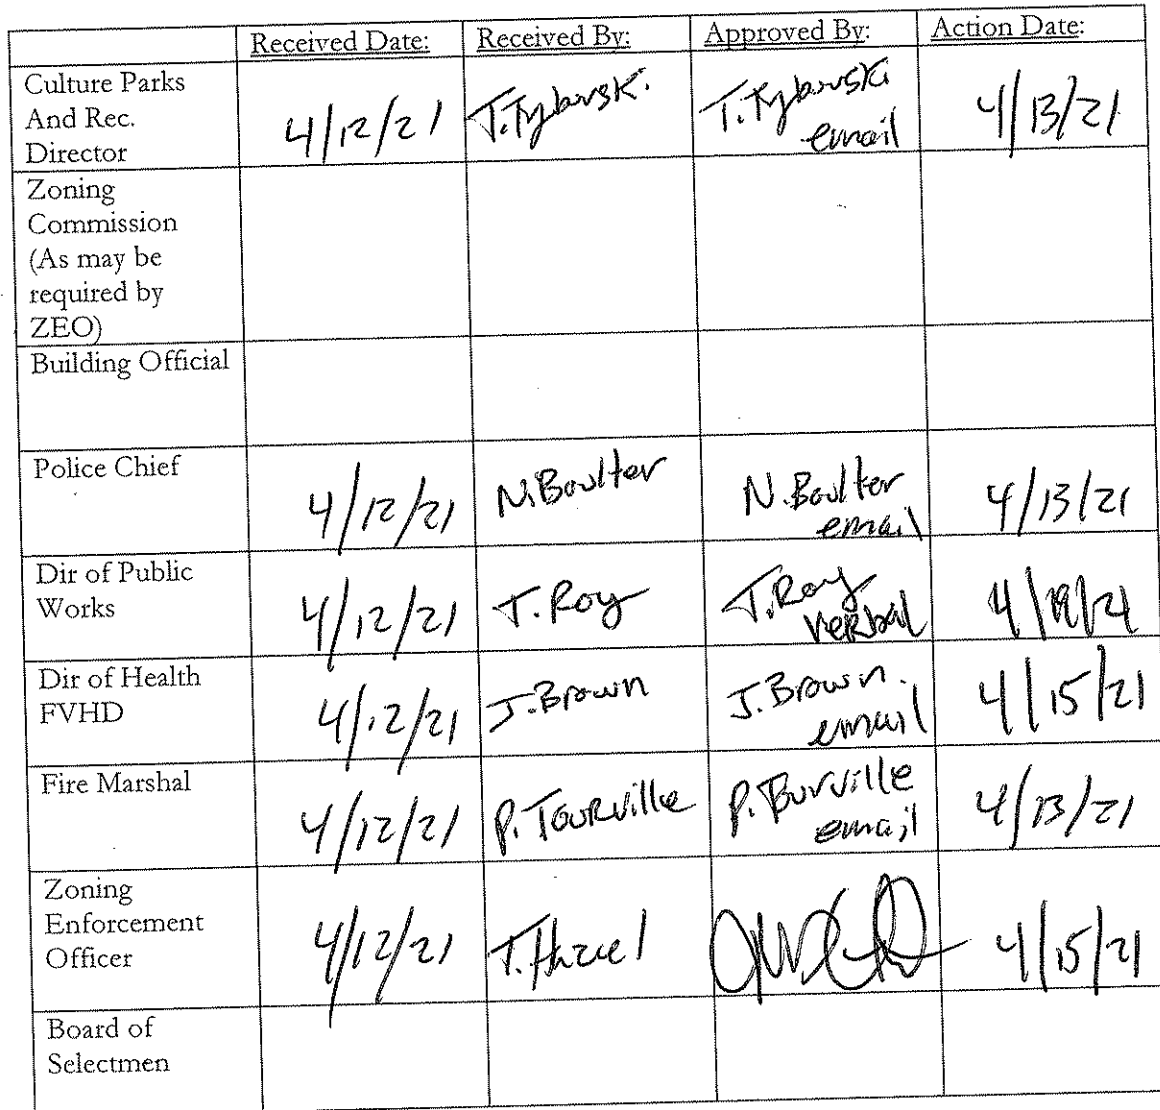 Received Date: Received By: Approved By: Action Date:
Culture Parks
And Rec.
Director
4/12/21 T. Tybouski. T. Tybouski
email
4/13/21
Zoning
Commission
(As may be
required by
ZEO)
Building Official
Police Chief
4/12/21 N. Boulter N. Boulter
email
4/13/21
Dir of Public
Works
4/12/21 T. Roy T. Roy
verbal
Dir of Health
FVHD
4/12/21 J. Brown J. Brown.
email
4/15/21
Fire Marshal
4/12/21 P. Tourville P. Burville
email
4/13/21
Zoning
Enforcement
Officer
4/12/21 T. 4/15/21
Board of
Selectmen